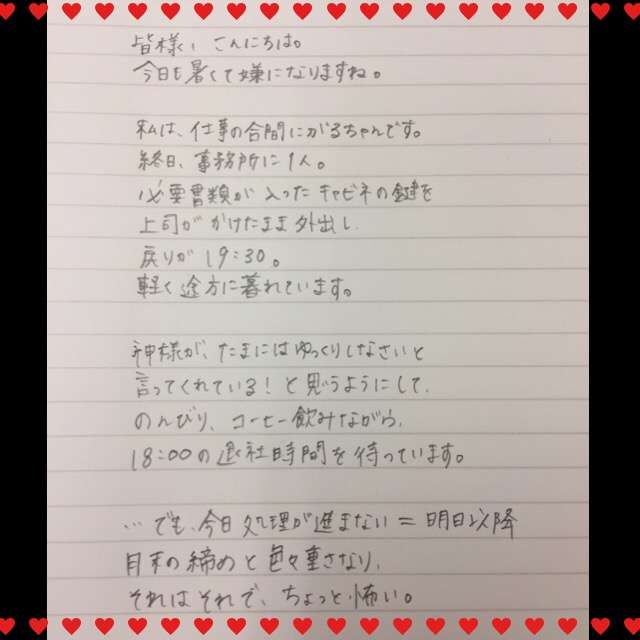 皆様、こんにちは。
今日も暑くて嫌になりますね。
私は、仕事の合間にがるちゃんです。
終日、事務所に1人。
必要書類が入ったキャビネの鍵を
上司がかけたまま外出し、
戻りが19:30。
軽く途方に暮れています。
神様が、たまにはゆっくりしなさいと
言ってくれている!と思うようにして、
のんびり、コーヒー飲みながら、
18:00の退社時間を待っています。
…でも、今日処理が進まない=明日以降
月末の締めと色々重さなり、
それはそれで、ちょっと怖い。